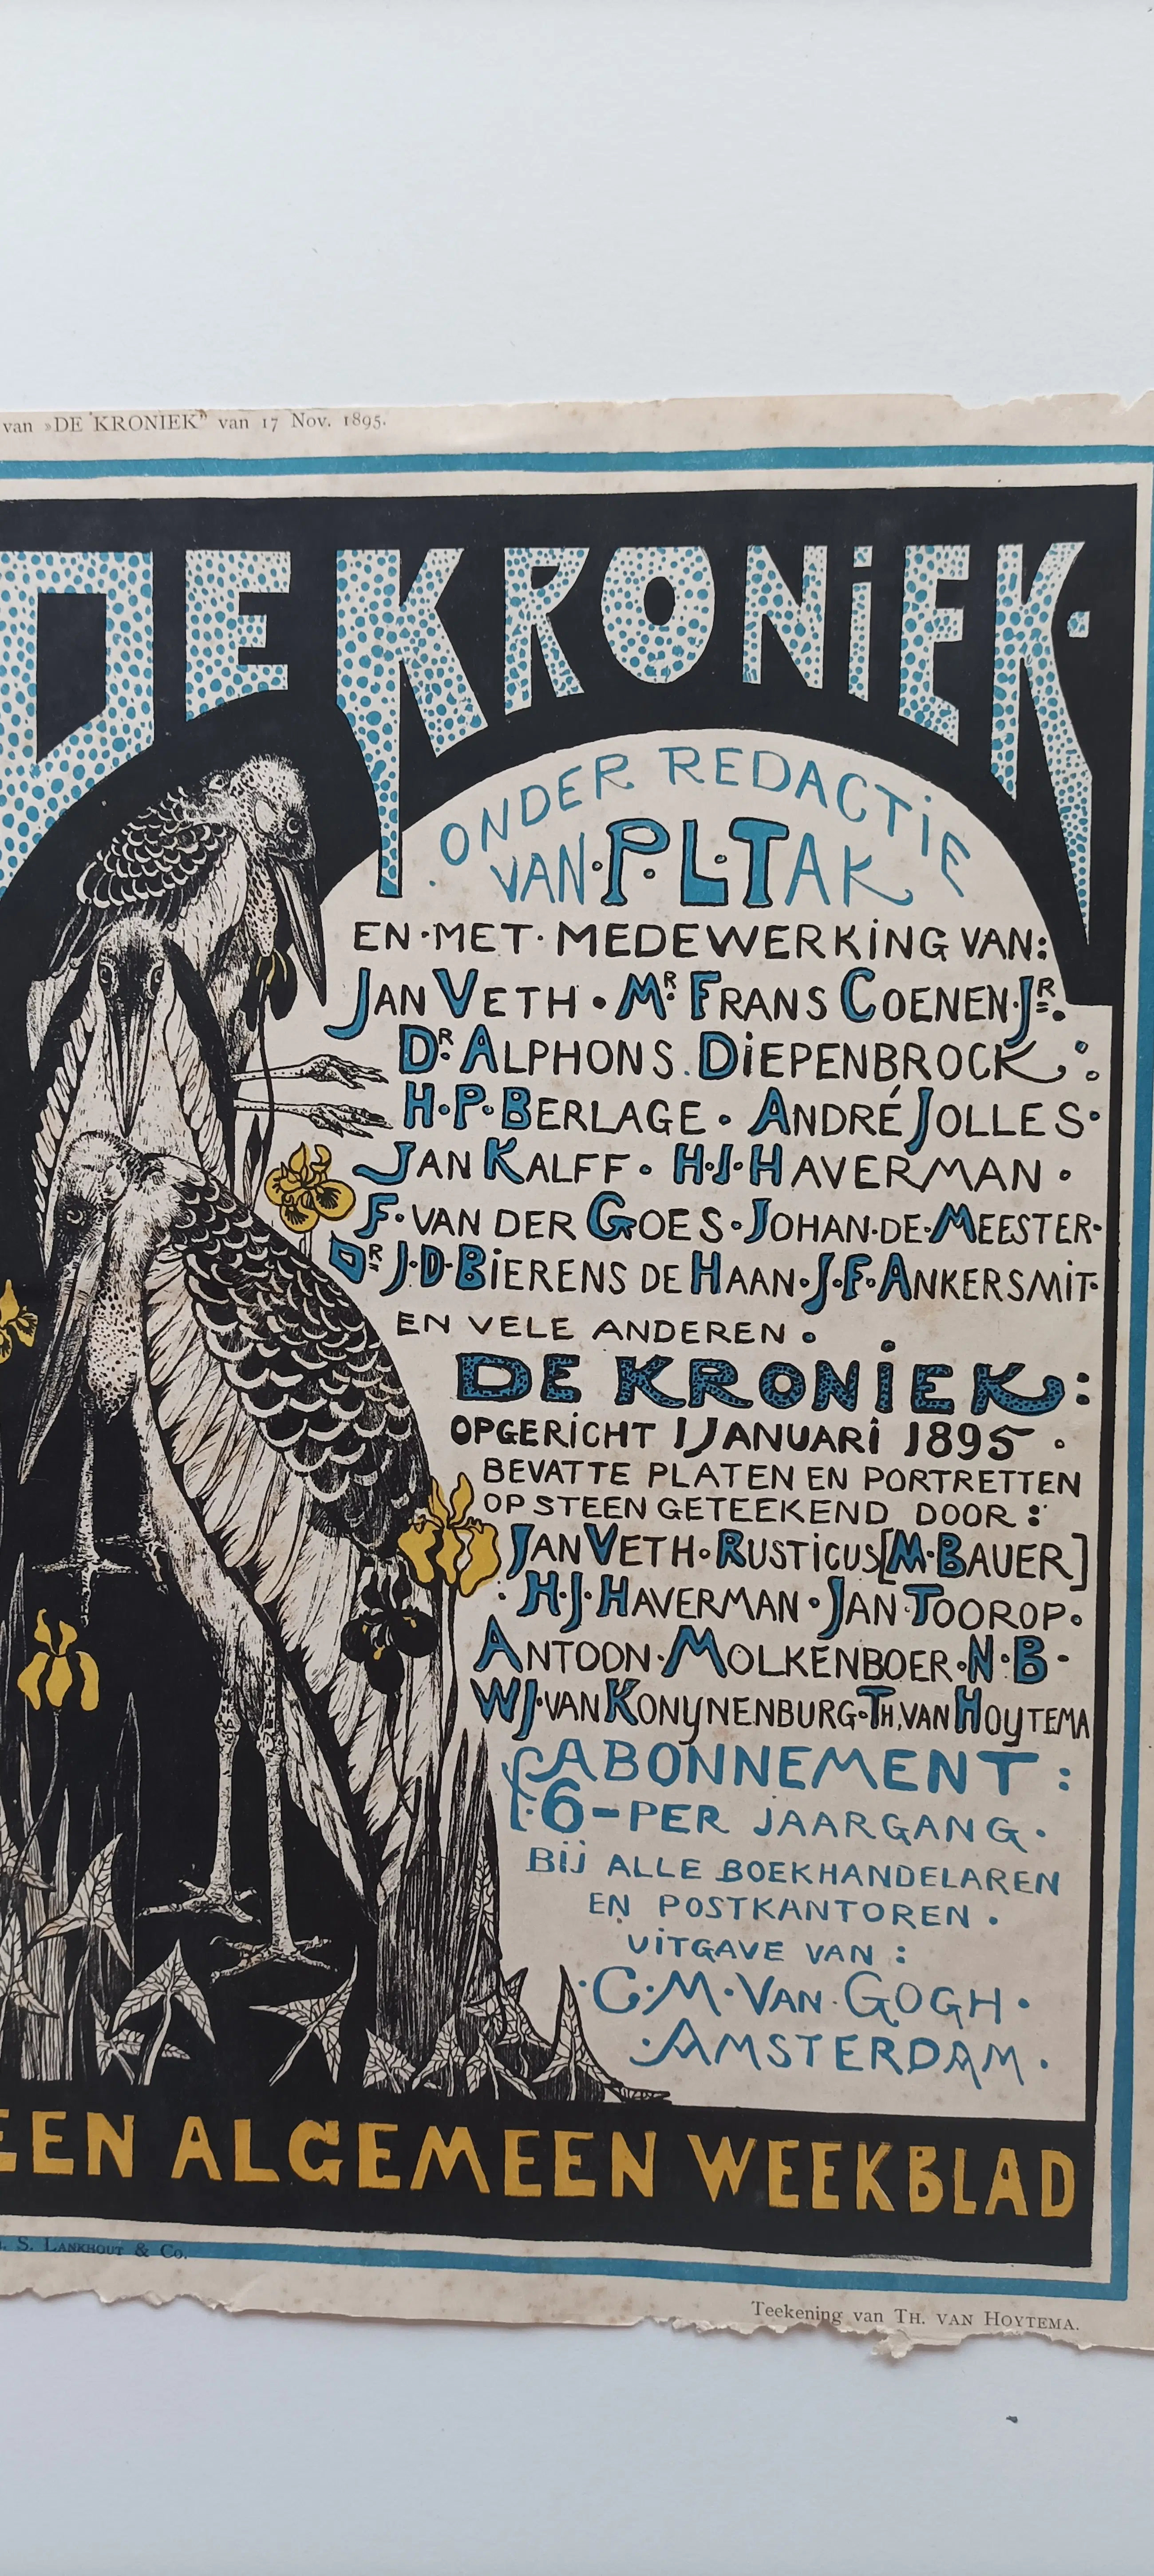 van »DE KRONIEK” van 17 Nov. 1895.
DE KRONiEK.
ONDER REDACTiE
VAN·P·L·TAK
EN·MET·MEDEWERKiNG VAN:
JAN VETH · MR. FRANS COENEN·JR.
DR. ALPHONS. DiEPENBROCK:
H·P·BERLAGE · ANDRÉ JOLLES·
JAN KALFF · H·J·HAVERMAN ·
F·VAN DER GOES·JOHAN·DE·MEESTER·
DR J·D·BiERENS DE HAAN·J·F·ANKERSMiT·
EN VELE ANDEREN ·
DE KRONiEK:
OPGERiCHT 1 JANUARi 1895 ·
BEVATTE PLATEN EN PORTRETTEN
OP STEEN GETEEKEND DOOR:
JAN VETH·RUSTiCUS[M·BAUER]
H·J·HAVERMAN·JAN·TOOROP·
ANTOON·MOLKENBOER·N·B·
WJ·VAN KONYNENBURG·TH. VAN HOYTEMA
ABONNEMENT:
f·6-PER JAARGANG·
BIJ ALLE BOEKHANDELAREN
EN POSTKANTOREN ·
UiTGAVE VAN:
·C·M·VAN·GOGH·
·AMSTERDAM·
EEN ALGEMEEN WEEKBLAD
S. LANKHOUT & Co.
Teekening van TH. VAN HOYTEMA.